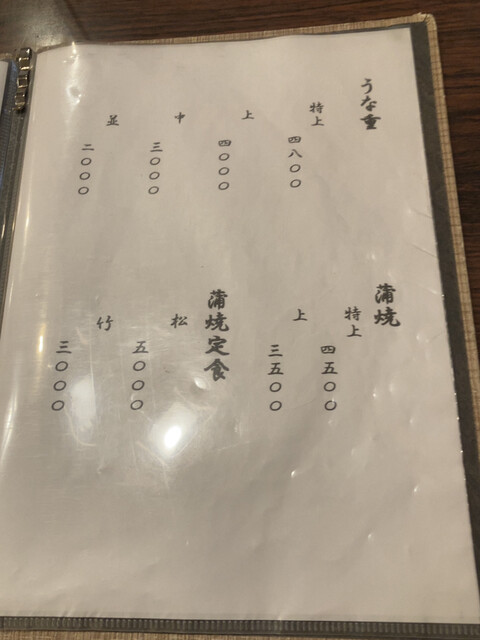 うな重
特上
四八〇〇
上
四〇〇〇
中
三〇〇〇
並
二〇〇〇
蒲焼
特上
四五〇〇
上
三五〇〇
蒲焼定食
松
五〇〇〇
竹
三〇〇〇